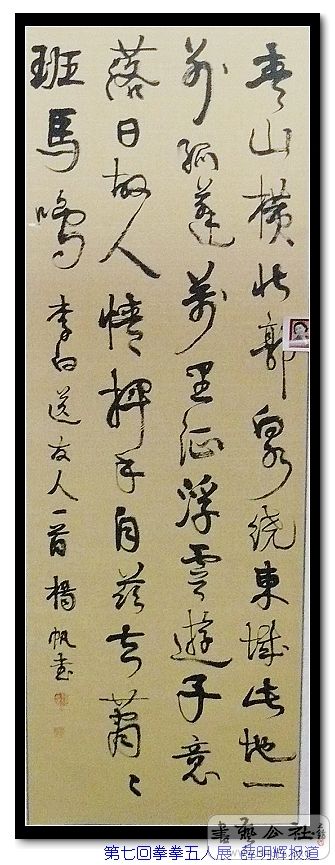 青山橫北郭白水绕東城此地一
別孤蓬萬里征浮雲遊子意
落日故人情揮手自茲去蕭〻
班馬鳴 李白送友人一首 楊帆書
書藝公社
第七回拳拳五人展 薛明辉报道